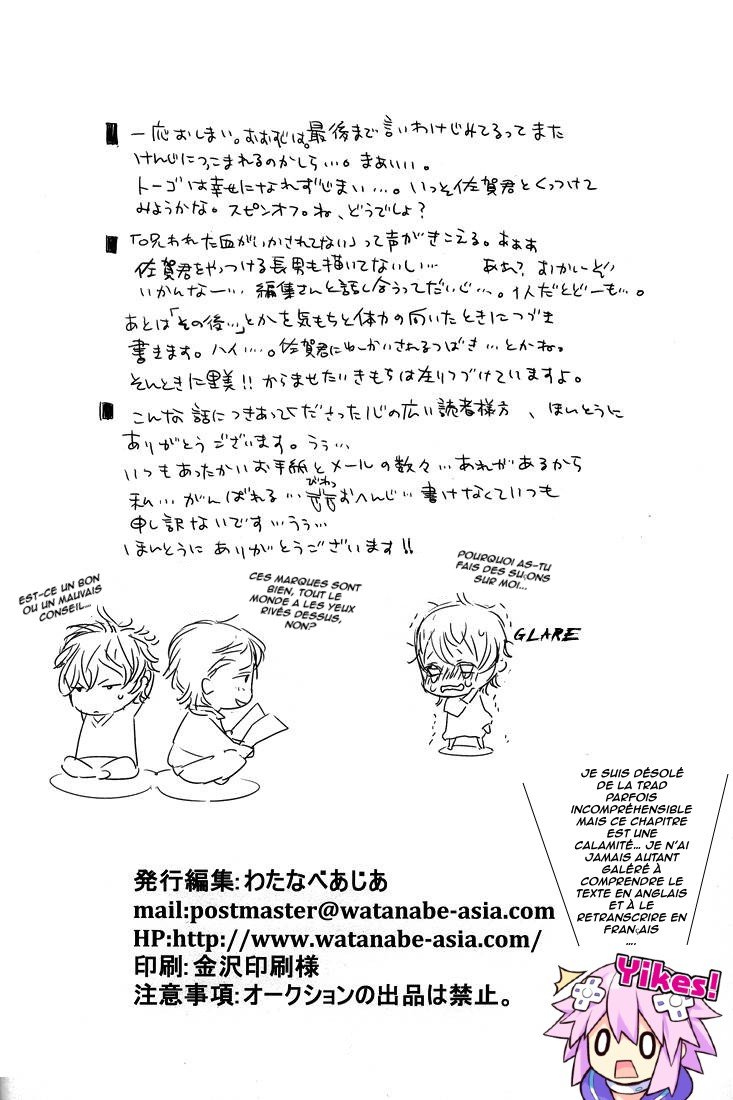 一応おしまい。おおずじは。最後まで言いわけじみてるってまた
けんじにつっこまれるのかしら…。まぁいい。
トーゴは幸せになれずじまい…。いっそ佐賀君とくっつけて
みようかな。スピンオフ。ね、どうでしょ?
「呪われた血がいかされてない」って声がきこえる。あぁぁ
佐賀君をやっつける長男も描いてないしい… あれ?
いかんなー… 編集さんと話し合うってだいじ…。1人だとどーも…。
あとは「その後…」とかを気もちと体力の向いたときにつづき
書きます。ハイ…。佐賀君にゆーかいされるつばき…とかね。
そんときに里美!!からませたいきもちは
こんな話につきあってくださった心の広い読者様方、ほんとうに
ありがとうございます。うぅ…
いつもあったかいお手紙とメールの数々…あれがあるから
私…がんばれる… おへんじ…書けなくていつも
申し訳ないです…うぅ…
ほんとうにありがとうございます!!
POURQUOI AS-TU
FAIS DES SUÇONS
SUR MOI...
CES MARQUES SONT
BIEN, TOUT LE
MONDE A LES YEUX
RIVÉS DESSUS,
NON?
EST-CE UN BON
OU UN MAUVAIS
CONSEIL...
GLARE
JE SUIS DÉSOLÉ
DE LA TRAD
PARFOIS
INCOMPRÉHENSIBLE
MAIS CE CHAPITRE
EST UNE
CALAMITÉ... JE N'AI
JAMAIS AUTANT
GALÉRÉ À
COMPRENDRE LE
TEXTE EN ANGLAIS
ET À LE
RETRANSCRIRE EN
FRANÇAIS
....
発行編集:わたなべあじあ
mail:postmaster@watanabe-asia.com
HP:http://www.watanabe-asia.com/
印刷:金沢印刷様
注意事項:オークションの出品は禁止。
Yikes!